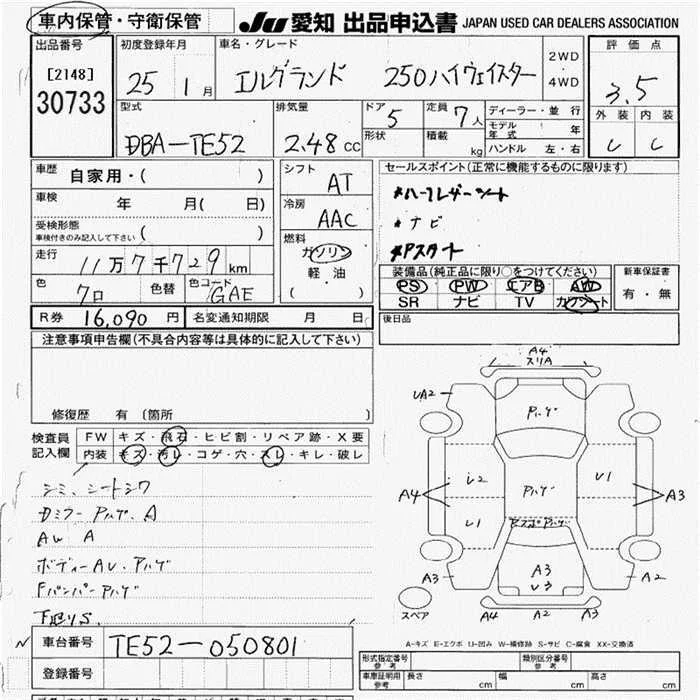 車内保管・守衛保管
JU 愛知 出品申込書 JAPAN USED CAR DEALERS ASSOCIATION
出品番号 初度登録年月 車名・グレード 2WD・4WD 評価点
[2148]
30733 25 1月 エルグランド 250ハイウェイスター 3.5
型式 排気量 ドア 定員 ディーラー・並行 外装 内装
DBA-TE52 2.48 CC 5 7人 モデル年式 年
形状 積載 kg ハンドル 左・右 C C
車歴 自家用・( ) シフト AT セールスポイント(正常に機能するものに限ります)
車検 年 月( 日) 冷房 AAC *ハーフレザーシート
受検形態 ( ) *ナビ
車検付きのみ記入して下さい 燃料 *Pスタート
走行 11万7千729km ガソリン
軽油
( )
装備品(純正品に限り○をつけてください) 新車保証書
色 クロ 色替 色コード GAE PS PW エアB AW 有・無
SR ナビ TV カワシート
R券 16,090円 名変通知期限 月 日 後日品
注意事項申告欄(不具合内容等は具体的に記入して下さい)
修復歴 有〔箇所 〕
検査員記入欄 FW キズ・飛石・ヒビ割・リペア跡・X要
内装 キズ・汚レ・コゲ・穴・スレ・キレ・破レ
シミ、シートシワ
Dミラー Pハゲ、A
AW A
ボディーAU、Pハゲ
Fバンパー Pハゲ
下廻りS
車台番号 TE52-050801
登録番号
A4
スリA
UA2
Pハゲ
A4 U2 Pハゲ U1 A3
U1
A3 A3 A2
U3
スペア A4 A2 A3
A-キズ E-エクボ U-凹み W-補修跡 S-サビ C-腐食 XX-交換済
形式指定番号 参考 類別区分番号 参考
車庫証明用 参考 長さ cm 幅 cm 高さ cm